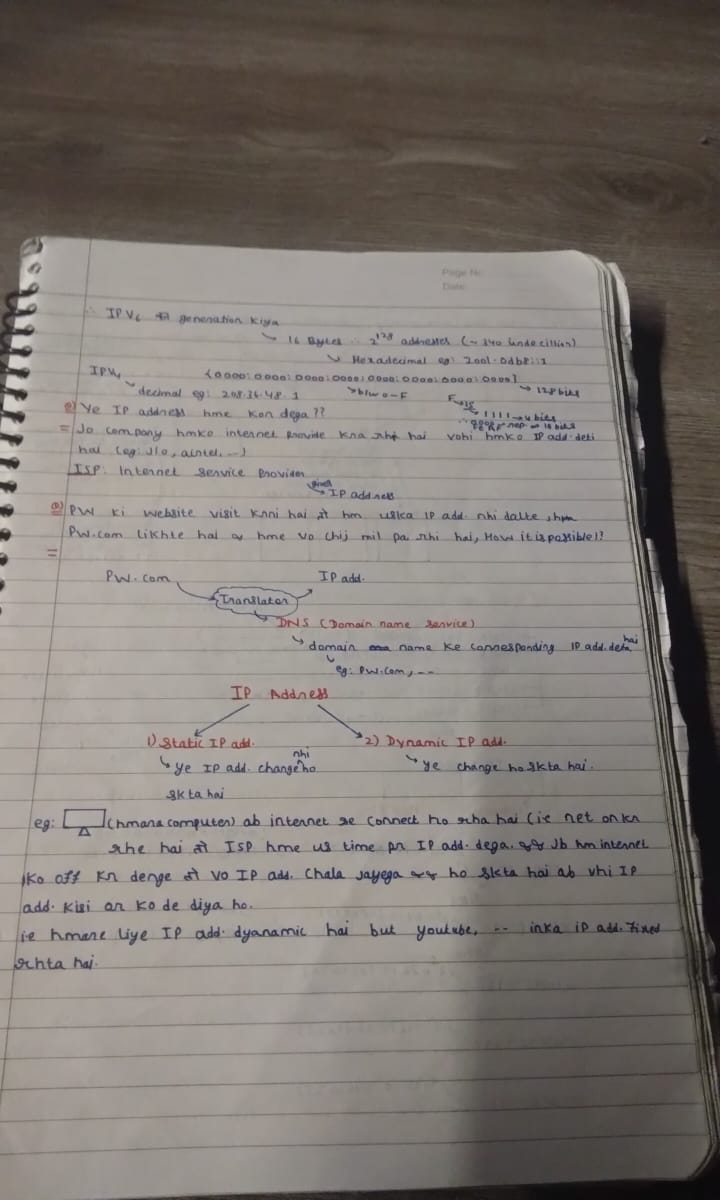 Page No.
Date
∴ IPV6 का generation kiya
↳ 16 Bytes ∴ 2^128 addresses (~340 undecillion)
↳ Hexadecimal eg: 2001:0db8::1
IPV4 [0000:0000:0000:0000:0000:0000:0000:0000] → 128 bits
↳ decimal eg: 208.36.48.1 ↳ b/w 0-F F→15
↳ 1111 → 4 bits
Q) Ye IP address hme kon dega??
= Jo company hmko internet provide kra rhi hai vohi hmko IP add. deti
hai (eg: Jio, airtel, --)
ISP: Internet service Provider
gives
↳ IP address
Q) PW ki website visit krni hai तो hm uska IP add. nhi dalte, hm
PW.com likhte hai or hme vo chij mil pa rhi hai, How it is possible!?
=
PW.com IP add.
Translator
↳ DNS (Domain name service)
↳ domain name ke corresponding IP add. deta hai
↳ eg: PW.com, --
IP Address
1) Static IP add. 2) Dynamic IP add.
↳ ye IP add. change nhi ho ↳ ye change ho skta hai.
skta hai
eg: (hmara computer) ab internet se connect ho rha hai (ie net on kr
rhe hai तो ISP hme us time pr IP add. dega. Jb hm internet
ko off kr denge तो vo IP add. chala jayega ho skta hai ab vhi IP
add. kisi or ko de diya ho.
ie hmare liye IP add. dyanamic hai but youtube, -- inka ip add. fixed
rhta hai.